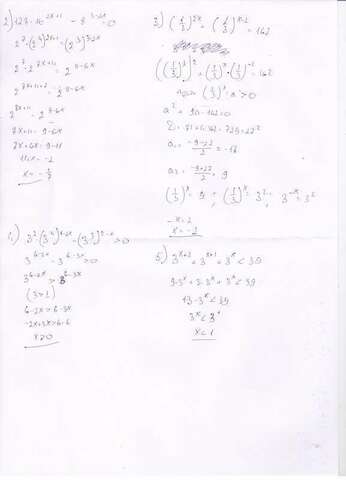 2) 128·16^(2x+1) - 8^(3-2x) = 0
2^7·(2^4)^(2x+1) = (2^3)^(3-2x)
2^7·2^(8x+4) = 2^(9-6x)
2^(8x+11) = 2^(9-6x)
8x+11 = 9-6x
8x+6x = 9-11
x = -1/7
3) (1/3)^(2x) + (1/3)^(x-2) = 162
((1/3)^x)^2 + (1/3)^x·(1/3)^(-2) = 162
(1/3)^x = a > 0
a^2 + 9a - 162 = 0
D = 81+4·162 = 729 = 27^2
a₁ = (-9-27)/2 = -18
a₂ = (-9+27)/2 = 9
(1/3)^x = 9; (1/3)^x = 3^2; 3^(-x) = 3^2
-x = 2
x = -2
3^(6-2x) > 3^(6-3x)
(3>1)
6-2x > 6-3x
-2x+3x > 6-6
x > 0
5) 3^(x+2) + 3^(x+1) + 3^x < 39
9·3^x + 3·3^x + 3^x < 39
13·3^x < 39
3^x < 3^1
x < 1